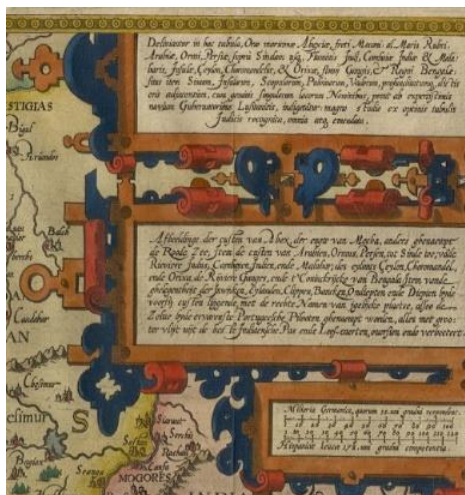 Deliniantur in hac tabula, Oræ maritimæ Abexiæ, freti Mecani: al. Maris Rubri:
Arabiæ, Ormi, Persiæ, supra Sindam usq. Fluminis Indi, Cambaiæ Indiæ & Mala-
baris, Insulæ Ceylon, Choromandelis, & Orixæ, fluvij Gangis, & Regni Bengalæ
situs item Sinuum, Insularum, Scopulorum, Pulvinorum, Vadorum, profunditatumq. dictis
oris adjacentium, cum genuinis singulorum locorum Nominibus, prout ab expertissimis
navium Gubernatoribus Lusitanis, indigitantur: magno studio ex optimis tabulis
Indicis recognita, omnia atq. emendata.
STIGIAS
Bigul
Balch
Afbeeldinge der custen van Abex, der engte van Mecha, anders ghenaempt
de Roode Zee, Item de custen van Arabien, Ormus, Persien, tot Sinde toe, vande
Rieviere Indus, Cambayen, Indien, ende Malabar, des eylants Ceylon, Choromandel,
ende Orixa, de Riviere Ganges, ende t'Coninckrijcke van Bengala, Item vande
gheleghentheyt der Inwijcken, Eylanden, Clippen, Bancken, Ondiepten ende Diepten, byde
voorsz custen liggende, met de rechte Namen van yeghelijcke plaetse, alsse de
Zelve byde ervarenste Portugeesche Piloten ghenaempt worden, alles met groo-
ter vlijt wt de beste Indiaensche Pas ende Lees-caerten, oversien ende verbeetert.
Candahar
AN
S
Milliaria Germanica, quorum 15. uni gradui respondent.
Hispanicæ leucæ 17½. uni gradui competentes.
MOGORES
INDIA